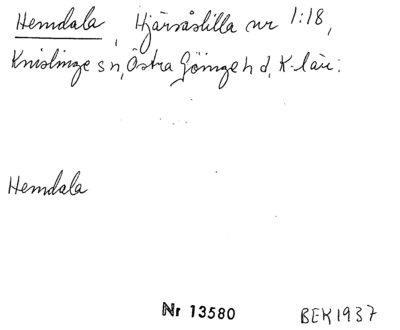 Hemdala, Hjärsåslilla nr 1:18,
Knislinge sn, Östra Göinge hd, K-län.
Hemdala
Nr 13580 BEK1937